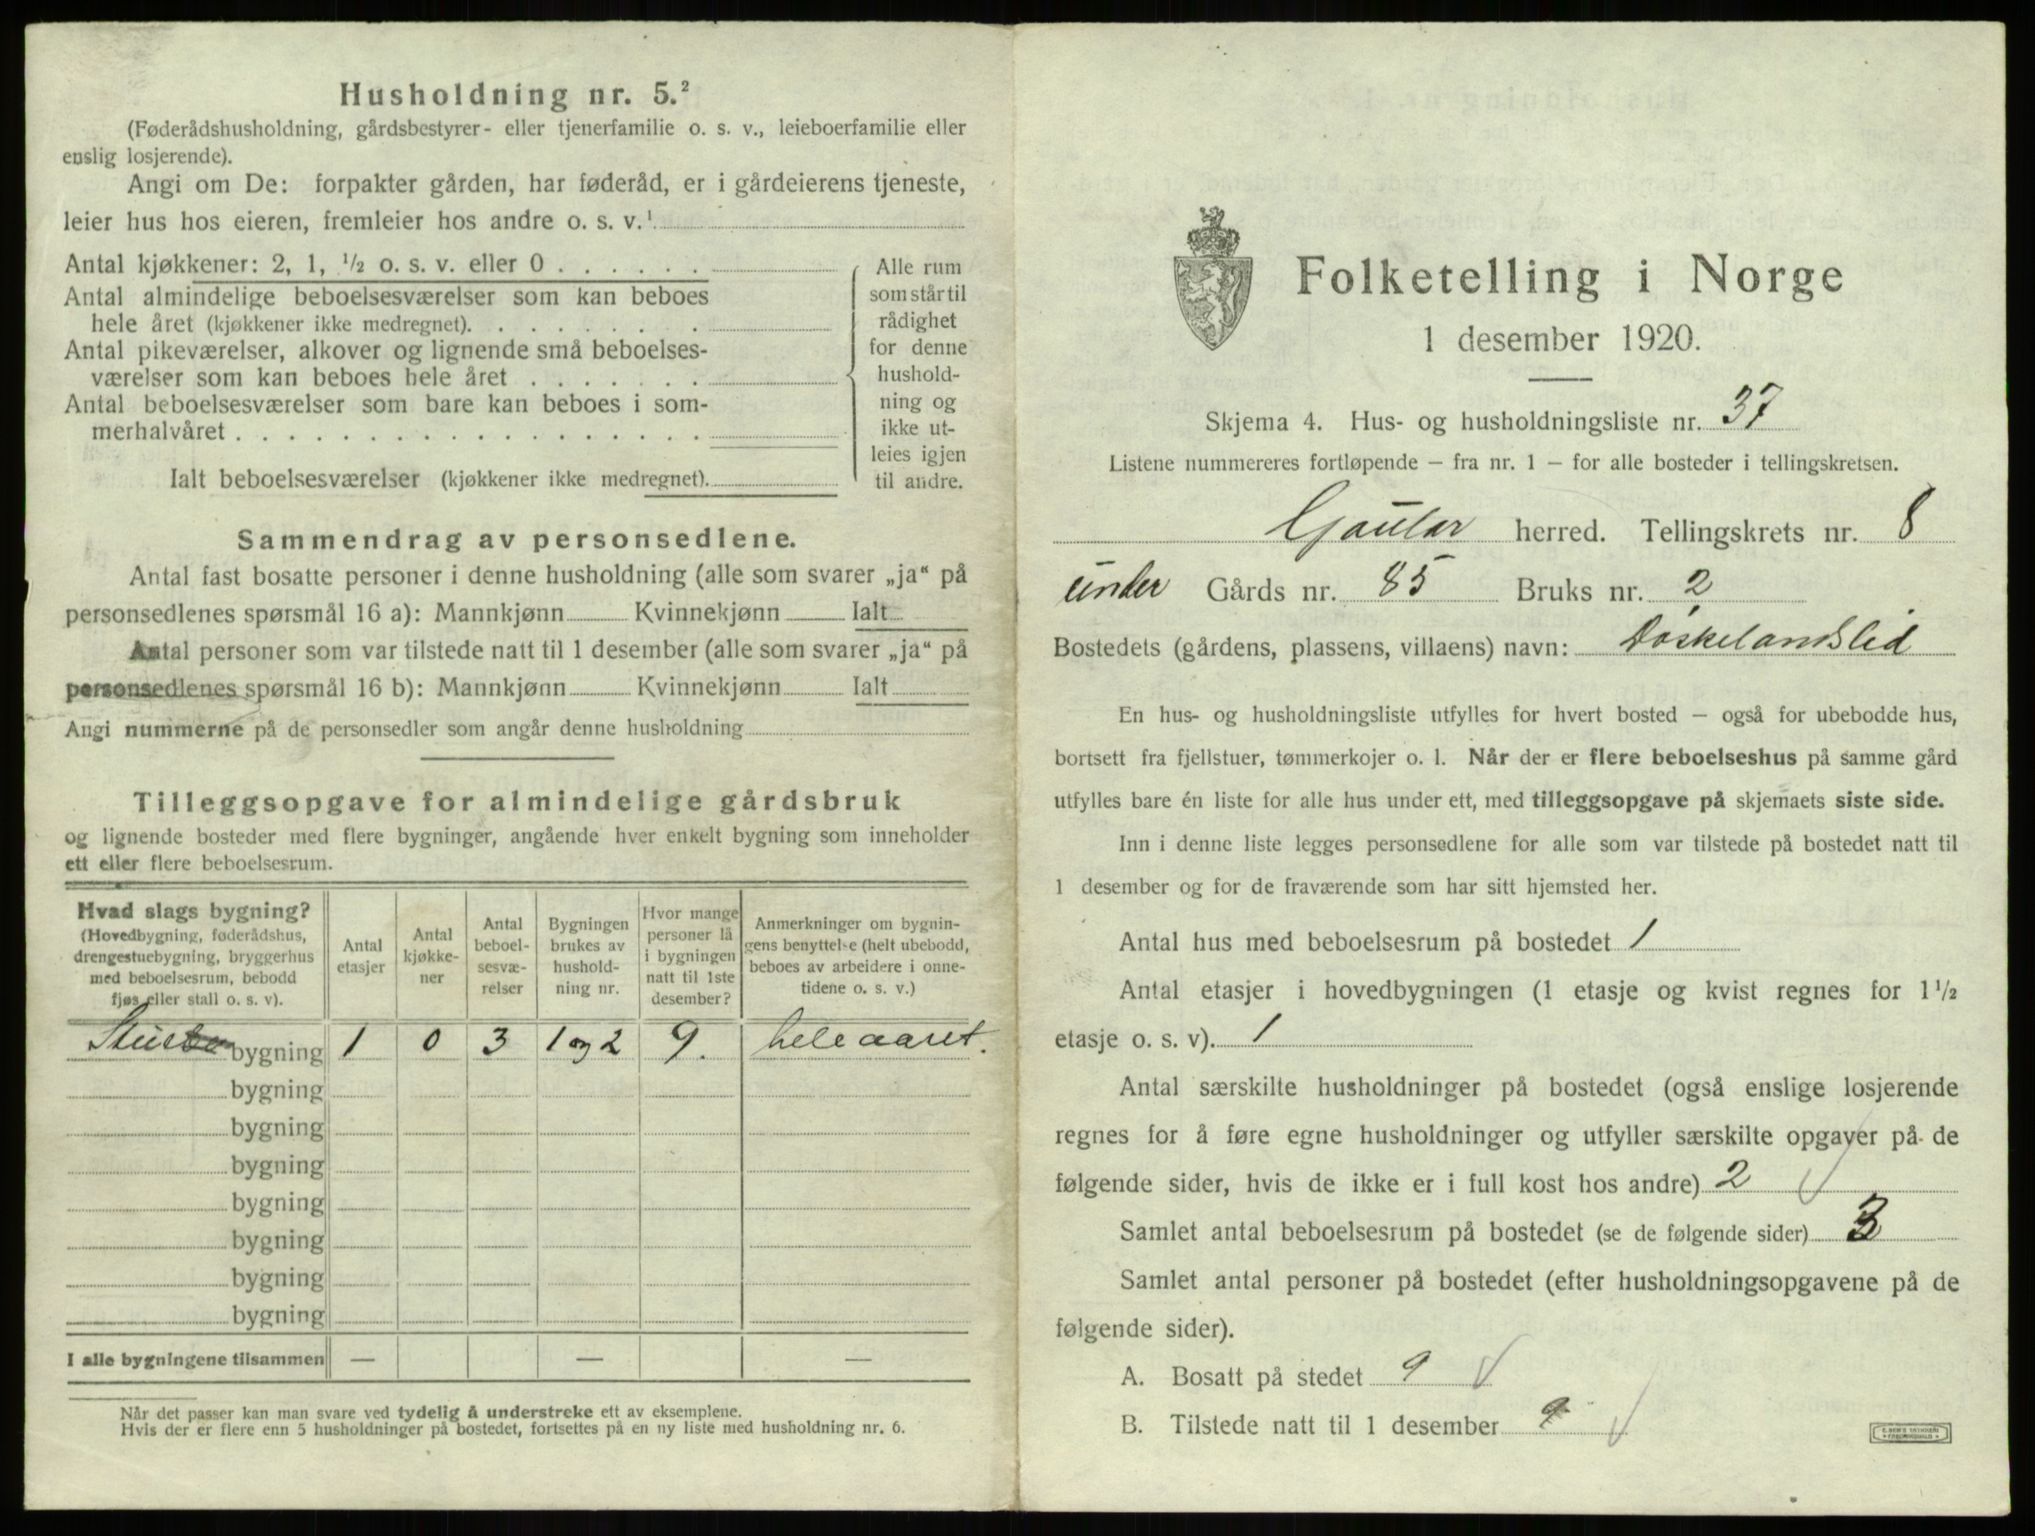 Husholdning nr. 5.²
(Føderådshusholdning, gårdsbestyrer- eller tjenerfamilie o. s. v., leieboerfamilie eller
enslig losjerende).
Angi om De: forpakter gården, har føderåd, er i gårdeierens tjeneste,
leier hus hos eieren, fremleier hos andre o. s. v.¹
Antal kjøkkener: 2, 1, ½ o. s. v. eller 0
Antal almindelige beboelsesværelser som kan beboes
hele året (kjøkkener ikke medregnet).
Antal pikeværelser, alkover og lignende små beboelses-
værelser som kan beboes hele året
Antal beboelsesværelser som bare kan beboes i som-
merhalvåret
Ialt beboelsesværelser (kjøkkener ikke medregnet).
Alle rum
som står til
rådighet
for denne
hushold-
ning og
ikke ut-
leies igjen
til andre.
Sammendrag av personsedlene.
Antal fast bosatte personer i denne husholdning (alle som svarer „ja“ på
personsedlenes spørsmål 16 a): Mannkjønn Kvinnekjønn Ialt
Antal personer som var tilstede natt til 1 desember (alle som svarer „ja“ på
personsedlenes spørsmål 16 b): Mannkjønn Kvinnekjønn Ialt
Angi nummerne på de personsedler som angår denne husholdning
Tilleggsopgave for almindelige gårdsbruk
og lignende bosteder med flere bygninger, angående hver enkelt bygning som inneholder
ett eller flere beboelsesrum.
Hvad slags bygning?
(Hovedbygning, føderådshus,
drengestuebygning, bryggerhus
med beboelsesrum, bebodd
fjøs eller stall o. s. v).
Antal
etasjer
Antal
kjøkke-
ner
Antal
beboel-
sesvæ-
relser
Bygningen
brukes av
hushold-
ning nr.
Hvor mange
personer lå
i bygningen
natt til 1ste
desember?
Anmerkninger om bygnin-
gens benyttelse (helt ubebodd,
beboes av arbeidere i onne-
tidene o. s. v.)
bygning 1 0 3 1 og 2 9. hele aaret.
bygning
bygning
bygning
bygning
bygning
bygning
bygning
I alle bygningene tilsammen — — —
Når det passer kan man svare ved tydelig å understreke ett av eksemplene.
Hvis der er flere enn 5 husholdninger på bostedet, fortsettes på en ny liste med husholdning nr. 6.
Folketelling i Norge
1 desember 1920.
Skjema 4. Hus- og husholdningsliste nr. 37
Listene nummereres fortløpende — fra nr. 1 — for alle bosteder i tellingskretsen.
Gaular herred. Tellingskrets nr. 8
under Gårds nr. 85 Bruks nr. 2
Bostedets (gårdens, plassens, villaens) navn: Døskelandslid
En hus- og husholdningsliste utfylles for hvert bosted — også for ubebodde hus,
bortsett fra fjellstuer, tømmerkojer o. l. Når der er flere beboelseshus på samme gård
utfylles bare én liste for alle hus under ett, med tilleggsopgave på skjemaets siste side.
Inn i denne liste legges personsedlene for alle som var tilstede på bostedet natt til
1 desember og for de fraværende som har sitt hjemsted her.
Antal hus med beboelsesrum på bostedet 1
Antal etasjer i hovedbygningen (1 etasje og kvist regnes for 1½
etasje o. s. v). 1
Antal særskilte husholdninger på bostedet (også enslige losjerende
regnes for å føre egne husholdninger og utfyller særskilte opgaver på de
følgende sider, hvis de ikke er i full kost hos andre) 2
Samlet antal beboelsesrum på bostedet (se de følgende sider) 3
Samlet antal personer på bostedet (efter husholdningsopgavene på de
følgende sider).
A. Bosatt på stedet 9
B. Tilstede natt til 1 desember 9